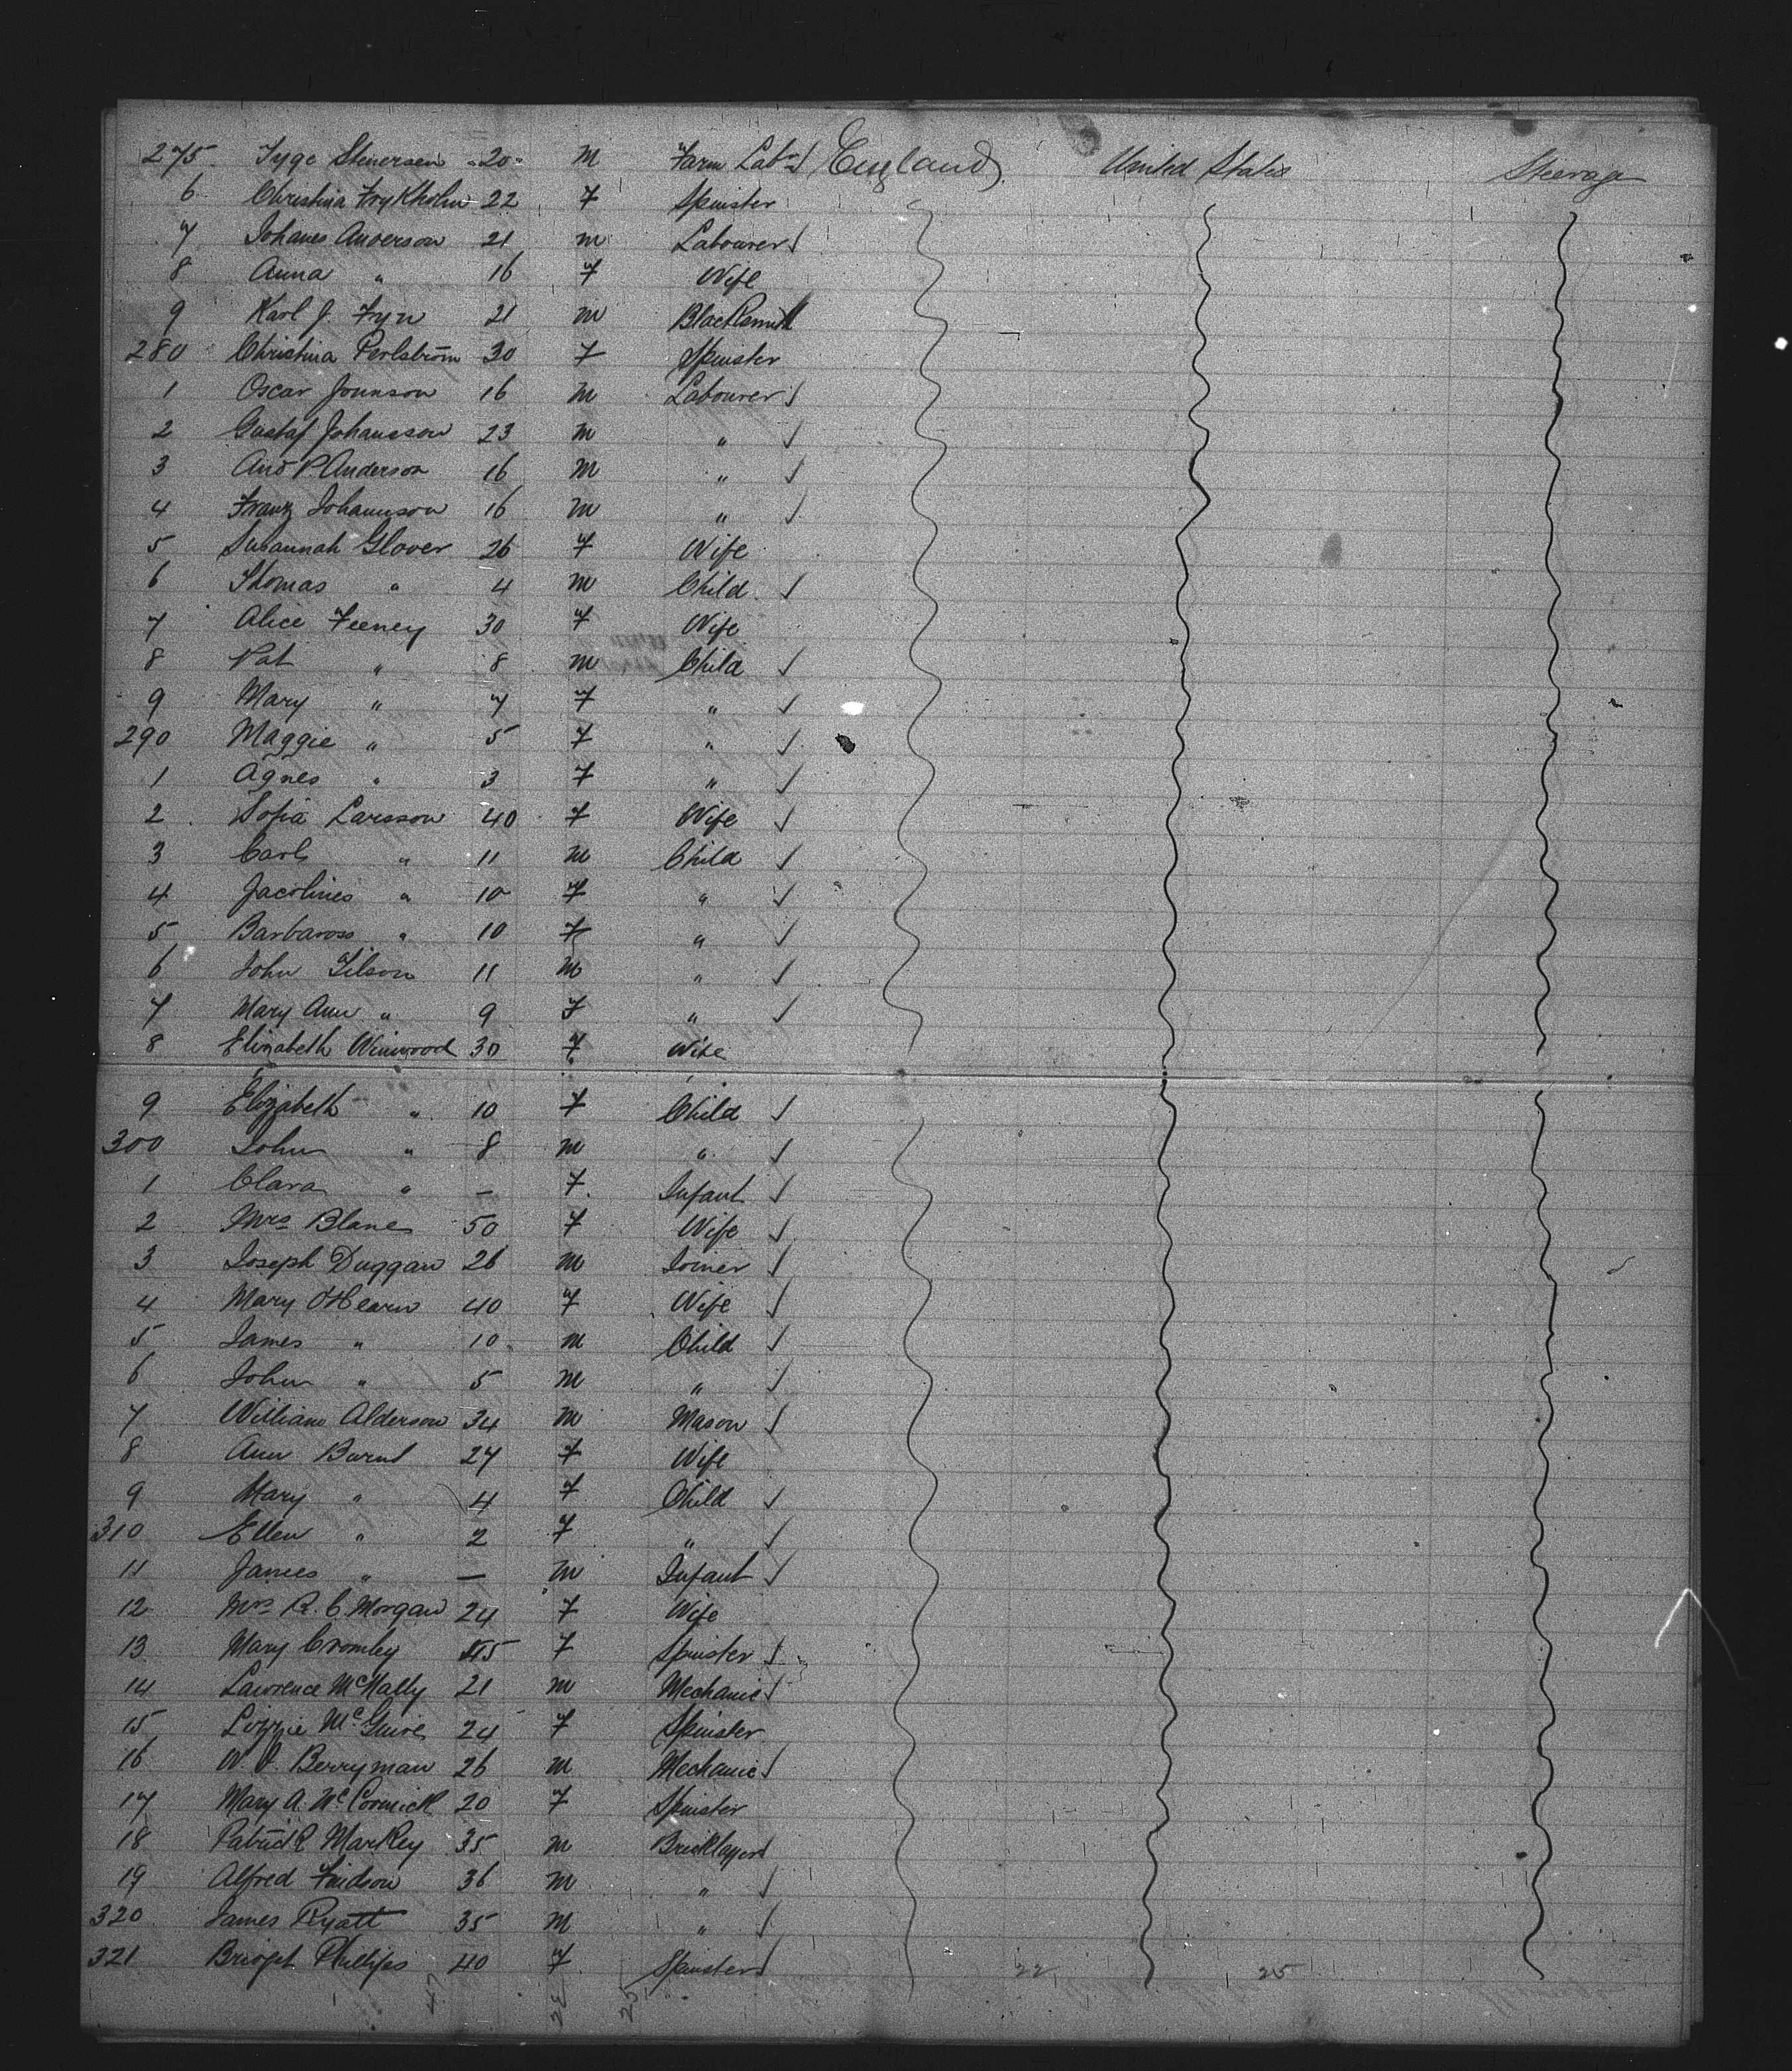 275 Tyge Stenersen 20 M Farm Labr England United States Steerage
6 Christina Frykholm 22 F Spinster
7 Johanes Anderson 21 M Labourer
8 Anna " 16 F Wife
9 Karl J. Fryn 21 M Blacksmith
280 Christina Perlström 30 F Spinster
1 Oscar Jounson 16 M Labourer
2 Gustaf Johansson 23 M "
3 And P. Anderson 16 M "
4 Franz Johannson 16 M "
5 Susannah Glover 26 F Wife
6 Thomas " 4 M Child
7 Alice Feeney 30 F Wife
8 Pat " 8 M Child
9 Mary " 7 F "
290 Maggie " 5 F "
1 Agnes " 3 F "
2 Sofia Larsson 40 F Wife
3 Carl " 11 M Child
4 Jacolines " 10 F "
5 Barbaross " 10 F "
6 John Tilson 11 M "
7 Mary Ann " 9 F "
8 Elizabeth Winwood 30 F Wife
9 Elizabeth " 10 F Child
300 John " 8 M "
1 Clara " — F Infant
2 Mrs Blane 50 F Wife
3 Joseph Duggan 26 M Joiner
4 Mary O'Hearn 40 F Wife
5 James " 10 M Child
6 John " 5 M "
7 William Alderson 34 M Mason
8 Ann Barnt 27 F Wife
9 Mary " 4 F Child
310 Ellen " 2 F "
11 James " — M Infant
12 Mrs R. C. Morgan 24 F Wife
13 Mary Cromley 45 F Spinster
14 Lawrence McNally 21 M Mechanic
15 Lizzie McGuire 24 F Spinster
16 W. V. Berryman 26 M Mechanic
17 Mary A. McCormick 20 F Spinster
18 Patrick Markey 35 M Bricklayer
19 Alfred Fridson 36 M "
320 James Pyatt 35 M "
321 Bridget Phillips 40 F Spinster
47 22 25 22 25